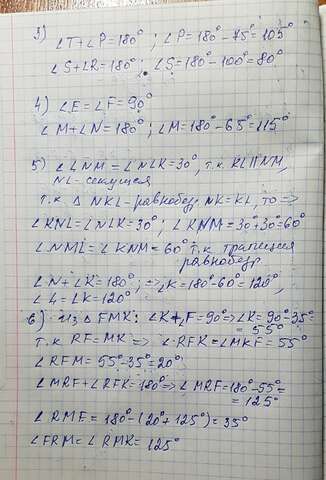 3) ∠T+∠P=180°; ∠P=180°-75°=105°
∠S+∠R=180°; ∠S=180°-100°=80°
4) ∠E=∠F=90°
∠M+∠N=180°; ∠M=180°-65°=115°
5) ∠LNM=∠NLK=30°, т.к. KL∥NM,
NL-секущая
т.к △NKL-равнобедр, NK=KL, то =>
∠KNL=∠NLK=30°; ∠KNM=30°+30°=60°
∠NML=∠KNM=60° т.к. трапеция
равнобедр
∠N+∠K=180°; =>∠K=180°-60°=120°,
∠L=∠K=120°
6) из △FMK: ∠K+∠F=90°=>∠K=90°-35°=
=55°
т.к RF=MK => ∠RFK=∠MKF=55°
∠RFM=55°-35°=20°
∠MRF+∠RFK=180°=>∠MRF=180°-55°=
=125°
∠RMF=180°-(20°+125°)=35°
∠FRM=∠RMK=125°